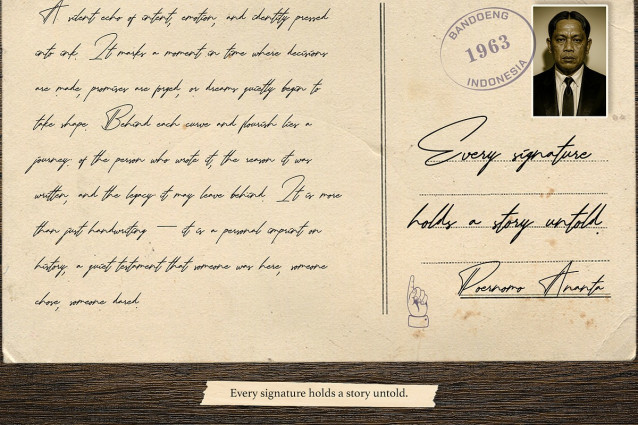 A silent echo of intent, emotion, and identity pressed
into ink. It marks a moment in time where decisions
are made, promises are forged, or dreams quietly begin to
take shape. Behind each curve and flourish lies a
journey: of the person who wrote it, the reason it was
written, and the legacy it may leave behind. It is more
than just handwriting — it is a personal imprint on
history, a quiet testament that someone was here, someone
chose, someone dared.
BANDOENG
1963
INDONESIA
Every signature
holds a story untold.
Poernomo Ananta
Every signature holds a story untold.